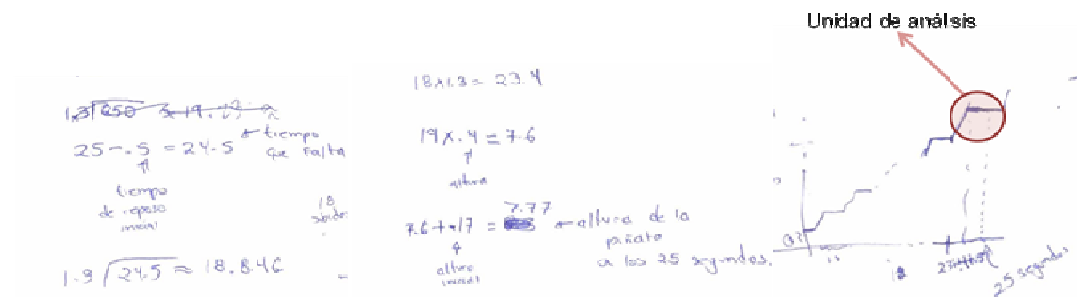 Unidad de análsis
25 - .5 = 24.5 ← tiempo
que falta
tiempo
de reposo
inicial
18
1.3 √24.5 ≈ 18.846
18 x 1.3 = 23.4
19 x .4 = 7.6
altura
7.6 + .17 = 7.77 ← altura de la
piñata
a los 25 segundos.
altura
inicial
18
25 segundos